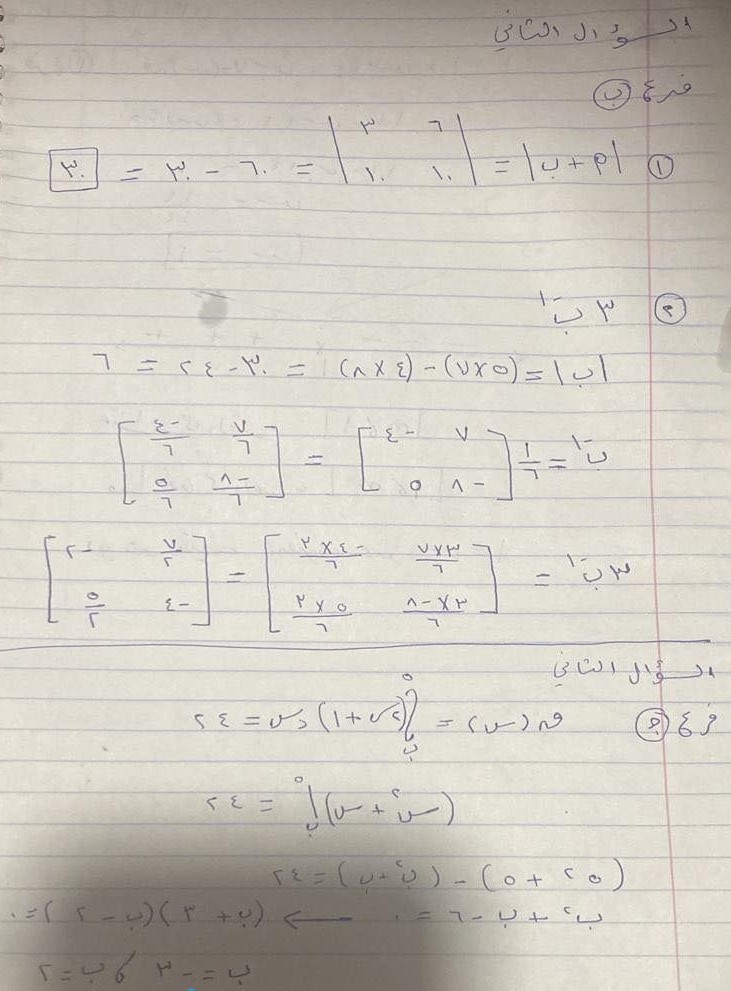 السؤال الثاني
فرع ب
① |م + ب| = |٦ ٣
١٠ ١٠| = ٦٠ - ٣٠ = ٣٠
② ٣ ب⁻¹
|ب| = (٥×٧) - (٤×٨) = ٣٠ - ٢٤ = ٦
ب⁻¹ = ١/٦ [٧ -٤
-٨ ٥] = [٧/٦ -٤/٦
-٨/٦ ٥/٦]
٣ ب⁻¹ = [٣×٧/٦ -٤×٣/٦
٣×-٨/٦ ٥×٣/٦] = [٧/٢ -٢
-٤ ٥/٢]
السؤال الثاني
فرع ج ق(س) = ∫ب٥ (٢س + ١) دس = ٢٤
(س² + س)|ب٥ = ٢٤
(٢٥ + ٥) - (ب² + ب) = ٢٤
ب² + ب - ٦ = ٠ ← (ب + ٣)(ب - ٢) = ٠
ب = -٣ ، ب = ٢